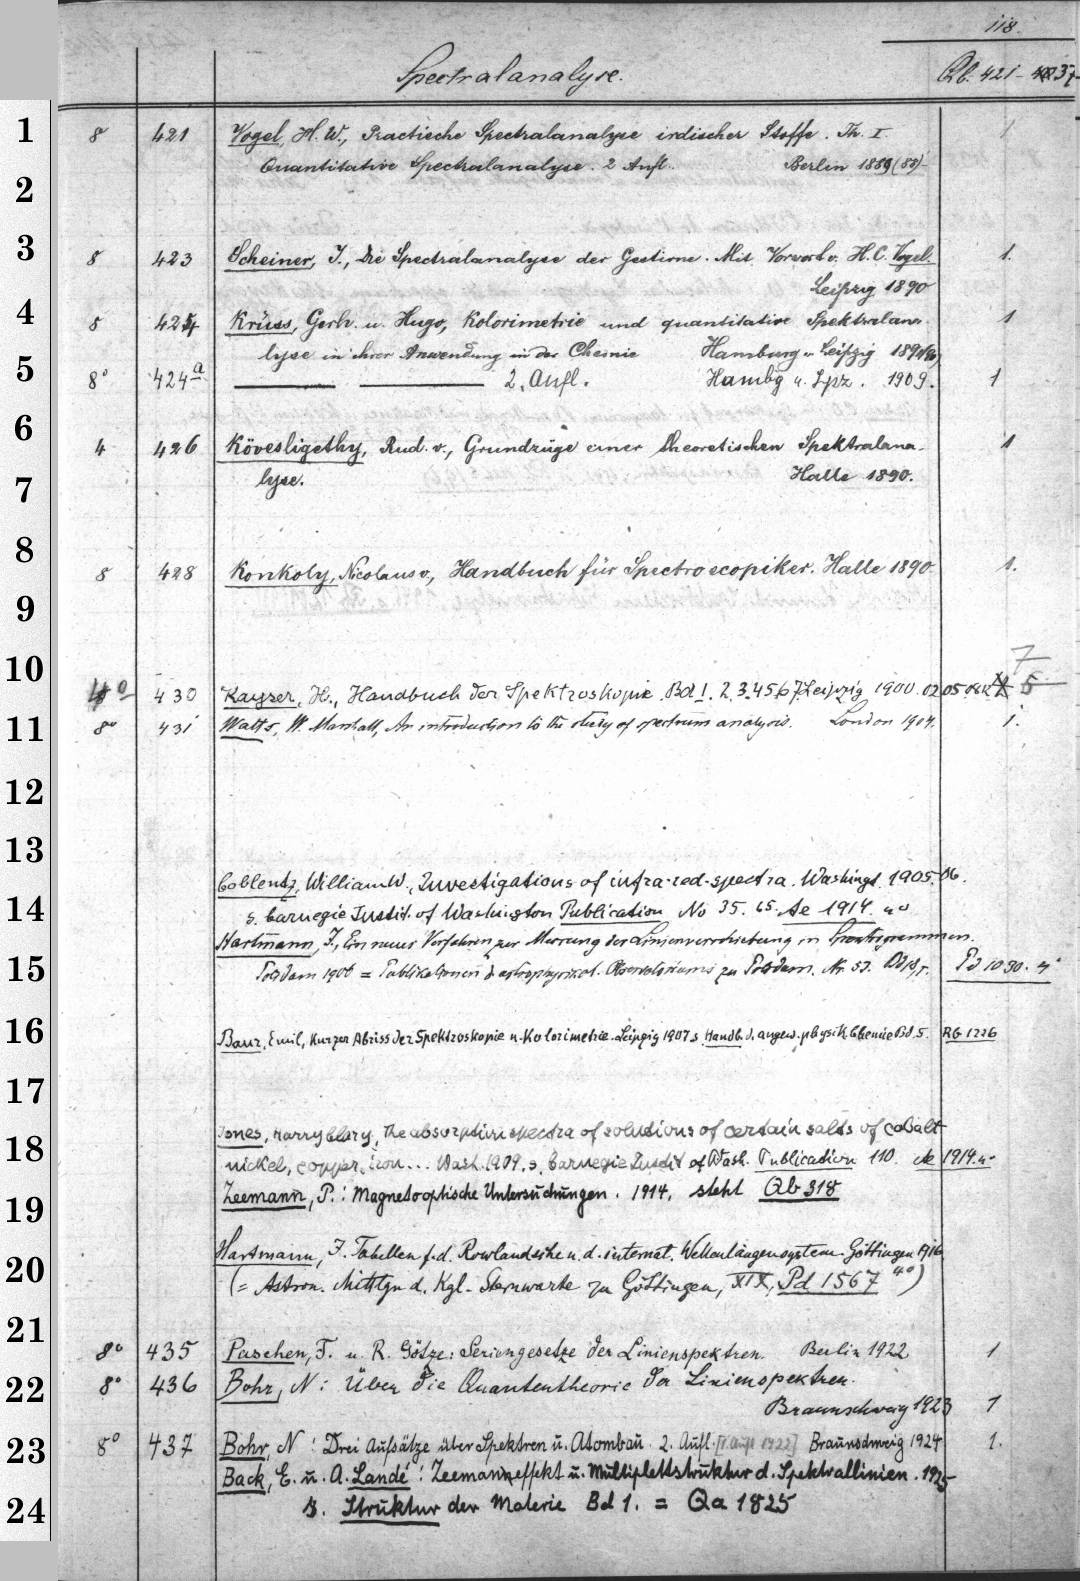 118.
Spectralanalyse. Qb. 421-437
1 8 421 Vogel, H. W., Practische Spectralanalyse irdischer Stoffe. Th. I 1
Quantitative Spectralanalyse. 2 Aufl. Berlin 1889 (88)
2
3 8 423 Scheiner, J., Die Spectralanalyse der Gestirne. Mit Vorwort v. H. C. Vogel. 1.
Leipzig 1890
4 8 424 Krüss, Gerh. u. Hugo, Kolorimetrie und quantitative Spektralana- 1
lyse in ihrer Anwendung in der Chemie Hamburg u. Leipzig 1891
5 8° 424a 2. Aufl. Hambg u. Lpz. 1909. 1
6 4 426 Kövesligethy, Rud. v., Grundzüge einer theoretischen Spektralana- 1
7 lyse. Halle 1890.
8 8 428 Konkoly, Nicolaus v., Handbuch für Spectroscopiker. Halle 1890 1.
9
7
10 4° 430 Kayser, H., Handbuch der Spektroskopie. Bd 1. 2. 3. 4 5 6 7 Leipzig 1900. 02 05 5
11 8° 431 Watts, W. Marshall, An introduction to the study of spectrum analysis. London 1904. 1.
12
13
Coblentz, William W., Investigations of infra-red-spectra. Washingt. 1905-06.
14 s. Carnegie Instit. of Washington Publication No 35. 65. Ae 1914. 4°
Hartmann, J., Ein neues Verfahren zur Messung der Linienverschiebung in Spectrogrammen.
15 Potsdam 1906 = Publikationen d. astrophysikal. Observatoriums zu Potsdam. Nr. 53. Bd 18, Pd 1030. 4°
16 Baur, Emil, Kurzer Abriss der Spektroskopie u. Kolorimetrie. Leipzig 1907 s. Handb. d. angew. physik. Chemie Bd. 5. Rb 1226
17
Jones, Harry Clary, The absorption spectra of solutions of certain salts of cobalt
18 nickel, copper, iron... Wash. 1909. s. Carnegie Instit of Wash. Publication 110. Ae 1914. 4°
19 Zeemann, P.: Magnetooptische Untersuchungen. 1914, steht Qb 318
Hartmann, J. Tabellen f. d. Rowlandsche u. d. internat. Wellenlängensystem. Göttingen 1916
20 (= Astron. Mittlgn d. Kgl. Sternwarte zu Göttingen, XIX, Pd 1567 4°)
21
8° 435 Paschen, F. u. R. Götze: Seriengesetze der Linienspektren. Berlin 1922 1
22 8° 436 Bohr, N: Über die Quantentheorie der Linienspektren.
Braunschweig 1923 1
23 8° 437 Bohr, N: Drei Aufsätze über Spektren u. Atombau. 2. Aufl. [1. Aufl 1922] Braunschweig 1924 1.
Back, E. u. A. Landé: Zeemaneffekt u. Multiplettstruktur d. Spektrallinien. 1925
24 s. Struktur der Materie Bd 1. = Qa 1825